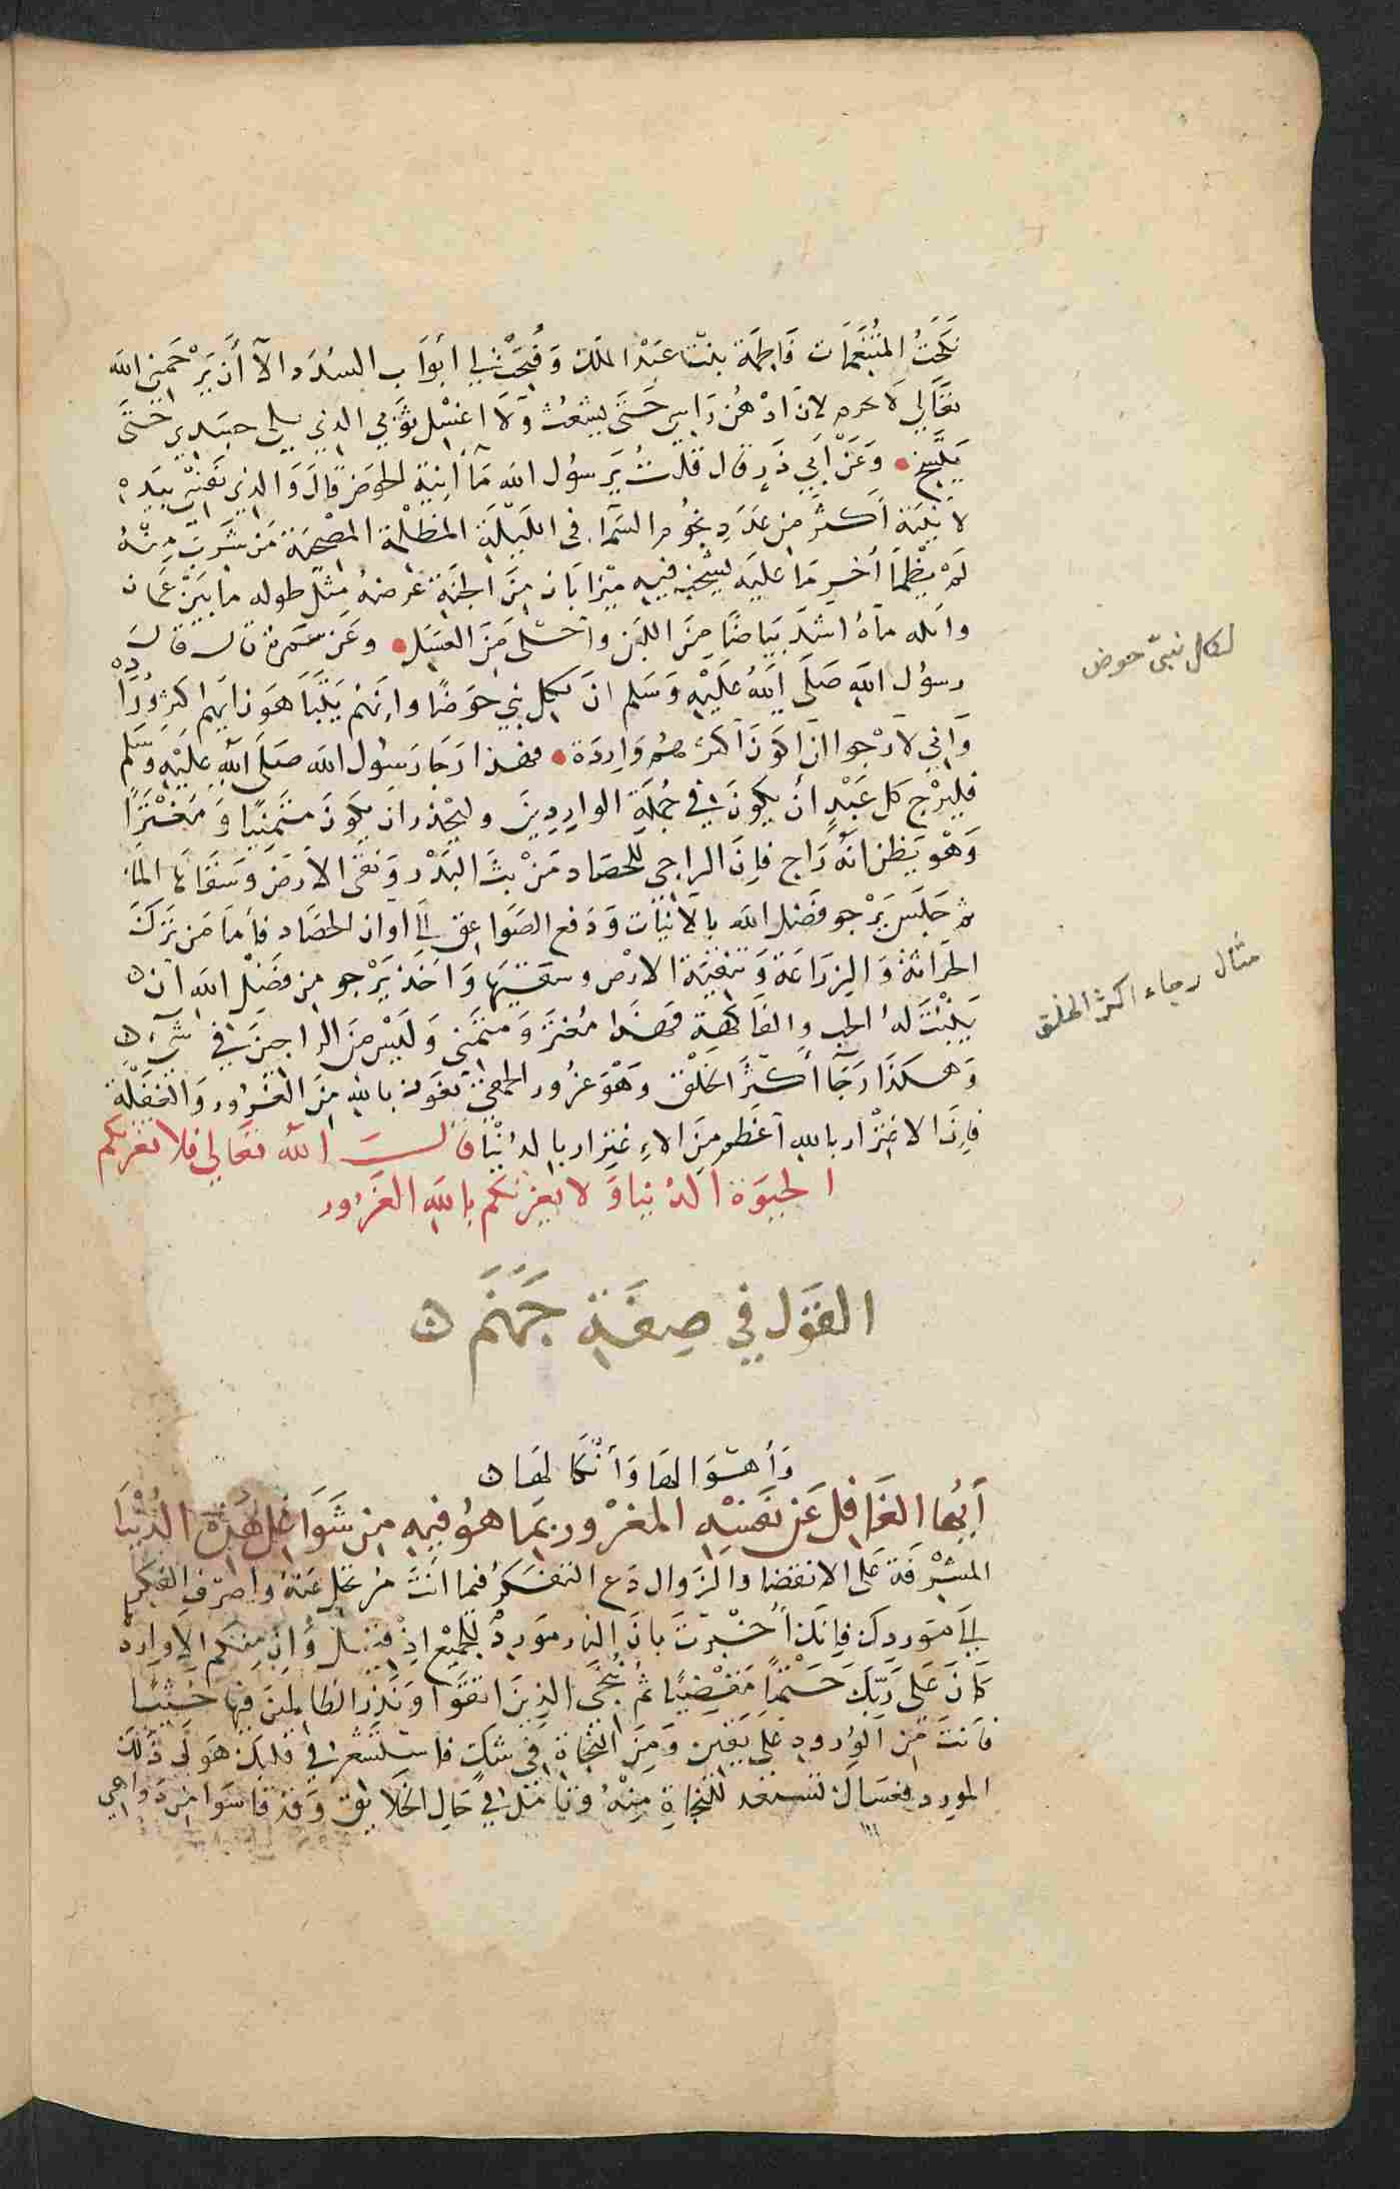 نكحت المتنعمات فاطمة بنت عبد الملك وفتحت لي أبواب السدد الا أن يرحمني الله
تعالى لا جرم لا ادهن راسي حتى يشعث ولا اغسل ثوبي الذي يلي جسدي حتى
يتسخ وعن أبي ذر قال قلت يرسول الله ما أنية الحوض قال والذي نفسي بيده
لانيته أكثر من عدد نجوم السما في الليلة المظلمة المصحية من شرب منه
لم يظما أخر ما عليه يشخب فيه ميزابان من الجنة عرضه مثل طوله ما بين عمان
وايله ماؤه اشد بياضا من اللبن واحلى من العسل وعن سمرة قال قال
رسول الله صلى الله عليه وسلم ان لكل نبي حوضا وانهم يتباهون ايهم اكثر واردة
واني لارجو ان اكون اكثرهم واردة فهذا رجا رسول الله صلى الله عليه وسلم
فليرج كل عبد أن يكون في جملة الواردين وليحذر ان يكون متمنيا ومغترا
وهو يظن انه راج فان الراجي للحصاد من بث البذر ونقى الارض وسقاها الما
ثم جلس يرجو فضل الله بالانبات ودفع الصواعق الى اوان الحصاد فأما من ترك
الحراثة والزراعة وتنقية الارض وسقيها واخذ يرجو من فضل الله ان
ينبت له الحب والفاكهة فهذا مغتر ومتمني وليس من الراجين في شيء
وهكذا رجا أكثر الخلق وهو غرور الحمقى نعوذ بالله من الغرور والغفلة
فان الاغترار بالله اعظم من الاغترار بالدنيا قال الله تعالى فلا تغرنكم
الحيوة الدنيا ولا يغرنكم بالله الغرور
القول في صفة جهنم
وأهوالها وأنكالها
أيها الغافل عن نفسه المغرور بما هو فيه من شواغل هذه الدنيا
المشرفة على الانقضا والزوال دع التفكر فيما انت مرتحل عنه واصرف الفكر
إلى موردك فانك أخبرت بان النار مورد للجميع اذ قيل وان منكم الا واردها
كان على ربك حتما مقضيا ثم ننجى الذين اتقوا ونذر الظالمين فيها جثيا
فانت من الورود على يقين ومن النجاة في شك فاستشعر في قلبك هول ذلك
المورد فعساك تستعد للنجاة منه وتامل في حال الخلايق وقد قاسوا من دواهي
لكل نبي حوض
مثال رجاء اكثر الخلق